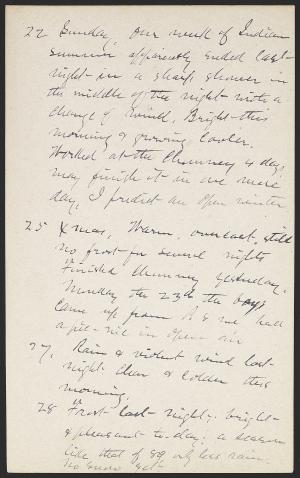 22 Sunday, Our week of Indian
summer apparently ended last
night in a sharp shower in
the middle of the night with a
change of wind. Bright this
morning & growing cooler.
Worked at the chimney 4 days,
may finish it in one more
day. I predict an open winter.
25 Xmas, Warm, overcast, still
no frost for several nights
Finished chimney yesterday.
Monday the 23d the boys
came up from P. & we had
a pic-nic in open air
27. Rain & violent wind last
night clear & colder this
morning.
28 Frost last night; bright
& pleasant to-day; a season
like that of 89 only less rain.
No snow yet